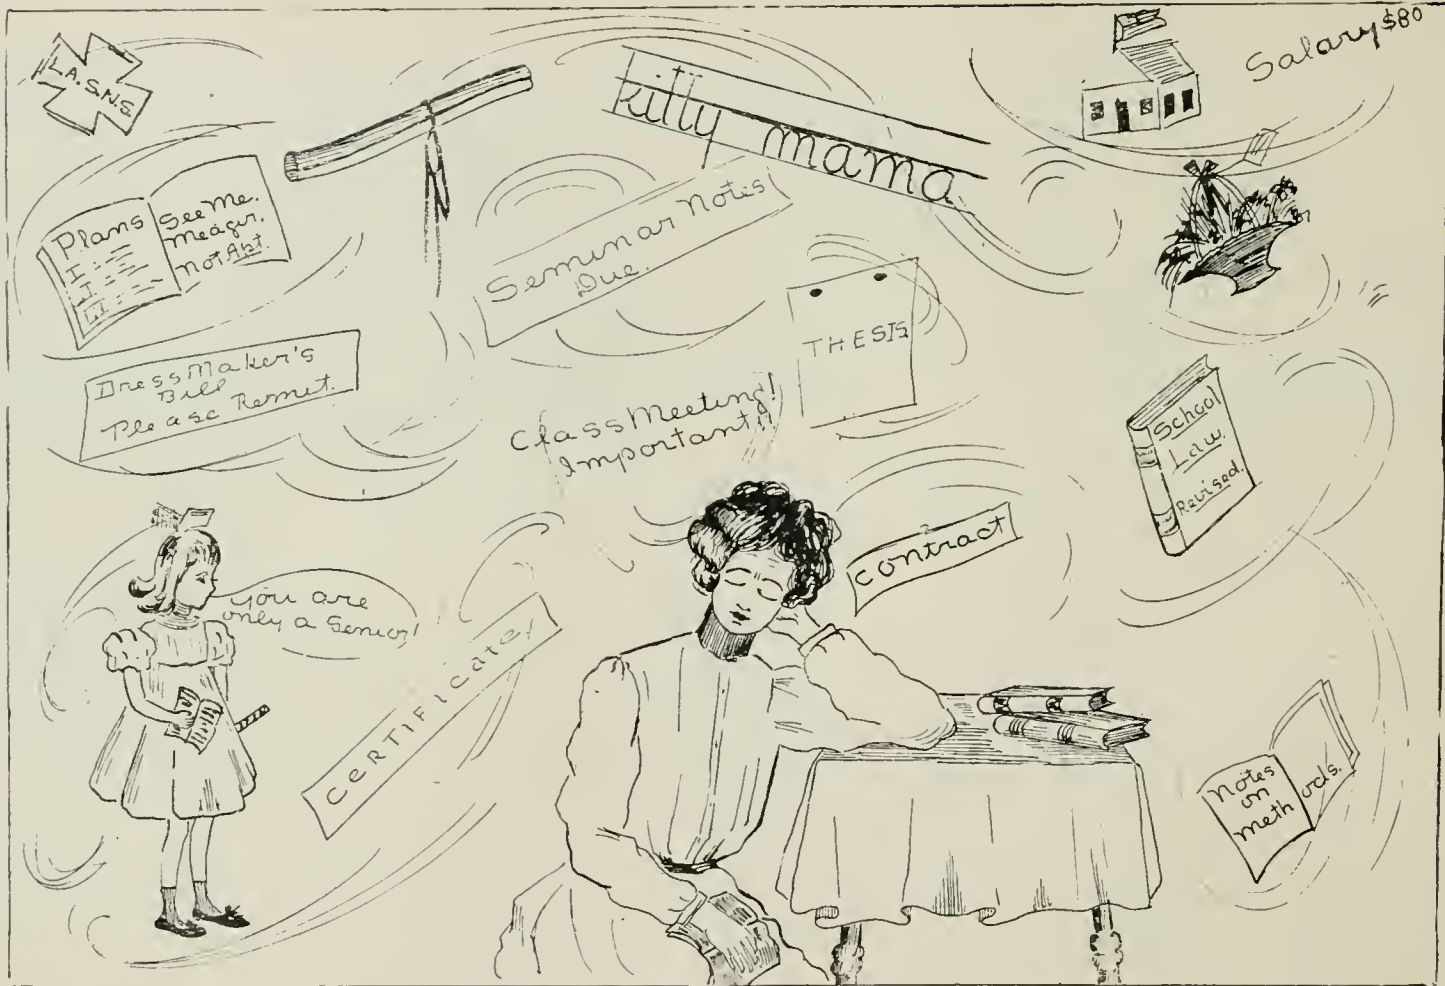 L.A.S.N.S.
kitty mama
Salary $80
Plans
I
I
III
See Me.
Meager.
Not Apt.
Seminar Notes
Due.
THESIS
DressMaker's
Bill
Please Remit.
Class Meeting!
Important!!
School
Law
Revised.
contract
You are
only a Senior!
CERTIFICATE
Notes
on
Methods.